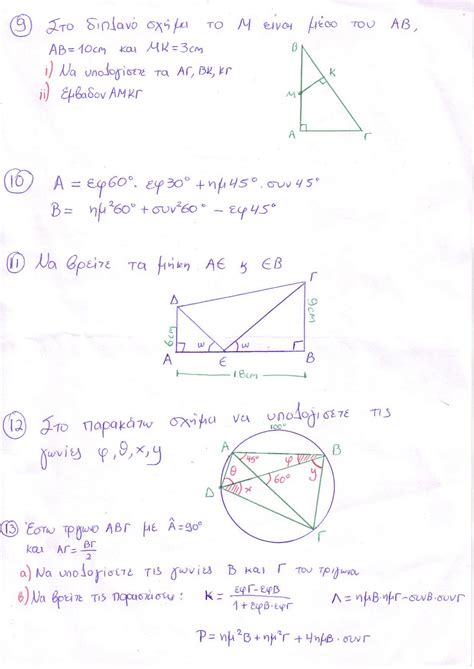 ⑨ Στο διπλανό σχήμα το Μ είναι μέσο του ΑΒ,
ΑΒ=10cm και ΜΚ=3cm
i) Να υπολογίσετε τα ΑΓ, ΒΚ, ΚΓ
ii) Εμβαδόν ΑΜΚΓ
Β
Κ
Μ
Α
Γ
⑩ Α = εφ60°· εφ30° + ημ45°· συν45°
Β = ημ²60° + συν²60° - εφ45°
⑪ Να βρείτε τα μήκη ΑΕ & ΕΒ
Γ
Δ
6cm
9cm
ω
ω
Α
Ε
Β
18cm
⑫ Στο παρακάτω σχήμα να υπολογίσετε τις
γωνίες φ, θ, x, y
100°
Α
Β
45°
φ
θ
60°
y
Δ
x
Γ
⑬ Έστω τρίγωνο ΑΒΓ με Â=90°
και ΑΓ = ΒΓ/2
α) Να υπολογίσετε τις γωνίες Β και Γ του τριγώνου
β) Να βρείτε τις παραστάσεις: Κ = (εφΓ-εφΒ)/(1+εφΒ·εφΓ) Λ = ημΒ·ημΓ-συνΒ·συνΓ
Ρ = ημ²Β + ημ²Γ + 4ημΒ·συνΓ